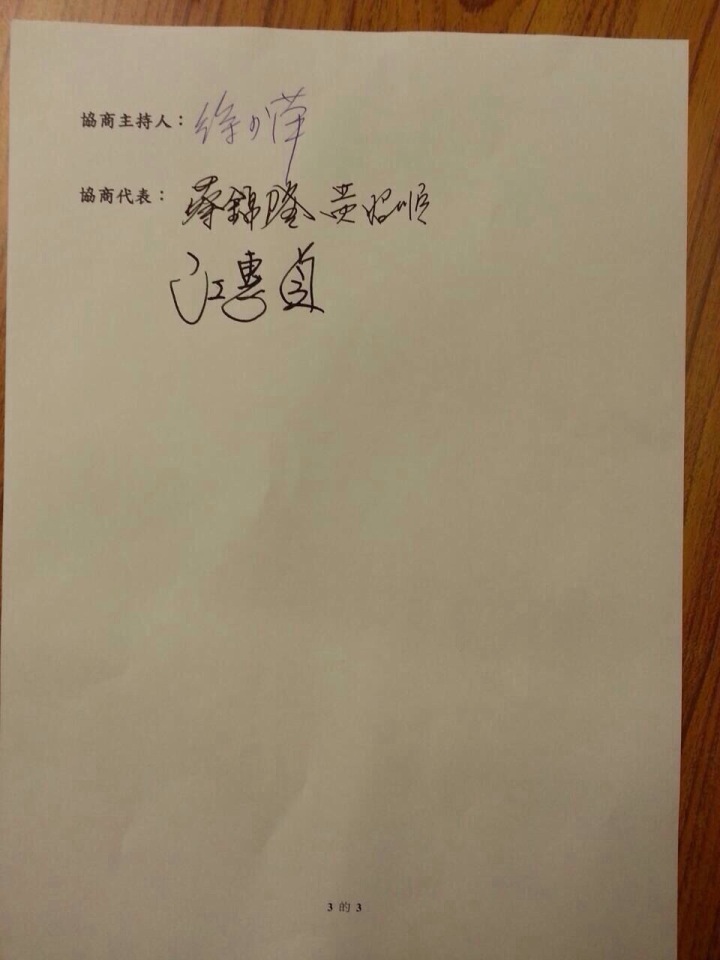 協商主持人：徐少萍
協商代表：蔡錦隆 黃昭順
江惠貞
3 的 3